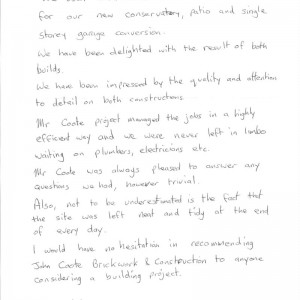 for our new conservatory, patio and single
storey garage conversion.
We have been delighted with the result of both
builds.
We have been impressed by the quality and attention
to detail on both constructions.
Mr Coote project managed the jobs in a highly
efficient way and we were never left in limbo
waiting on plumbers, electricians etc.
Mr Coote was always pleased to answer any
questions we had, however trivial.
Also, not to be underestimated is the fact that
the site was left neat and tidy at the end
of every day.
I would have no hesitation in recommending
John Coote Brickwork & Construction to anyone
considering a building project.